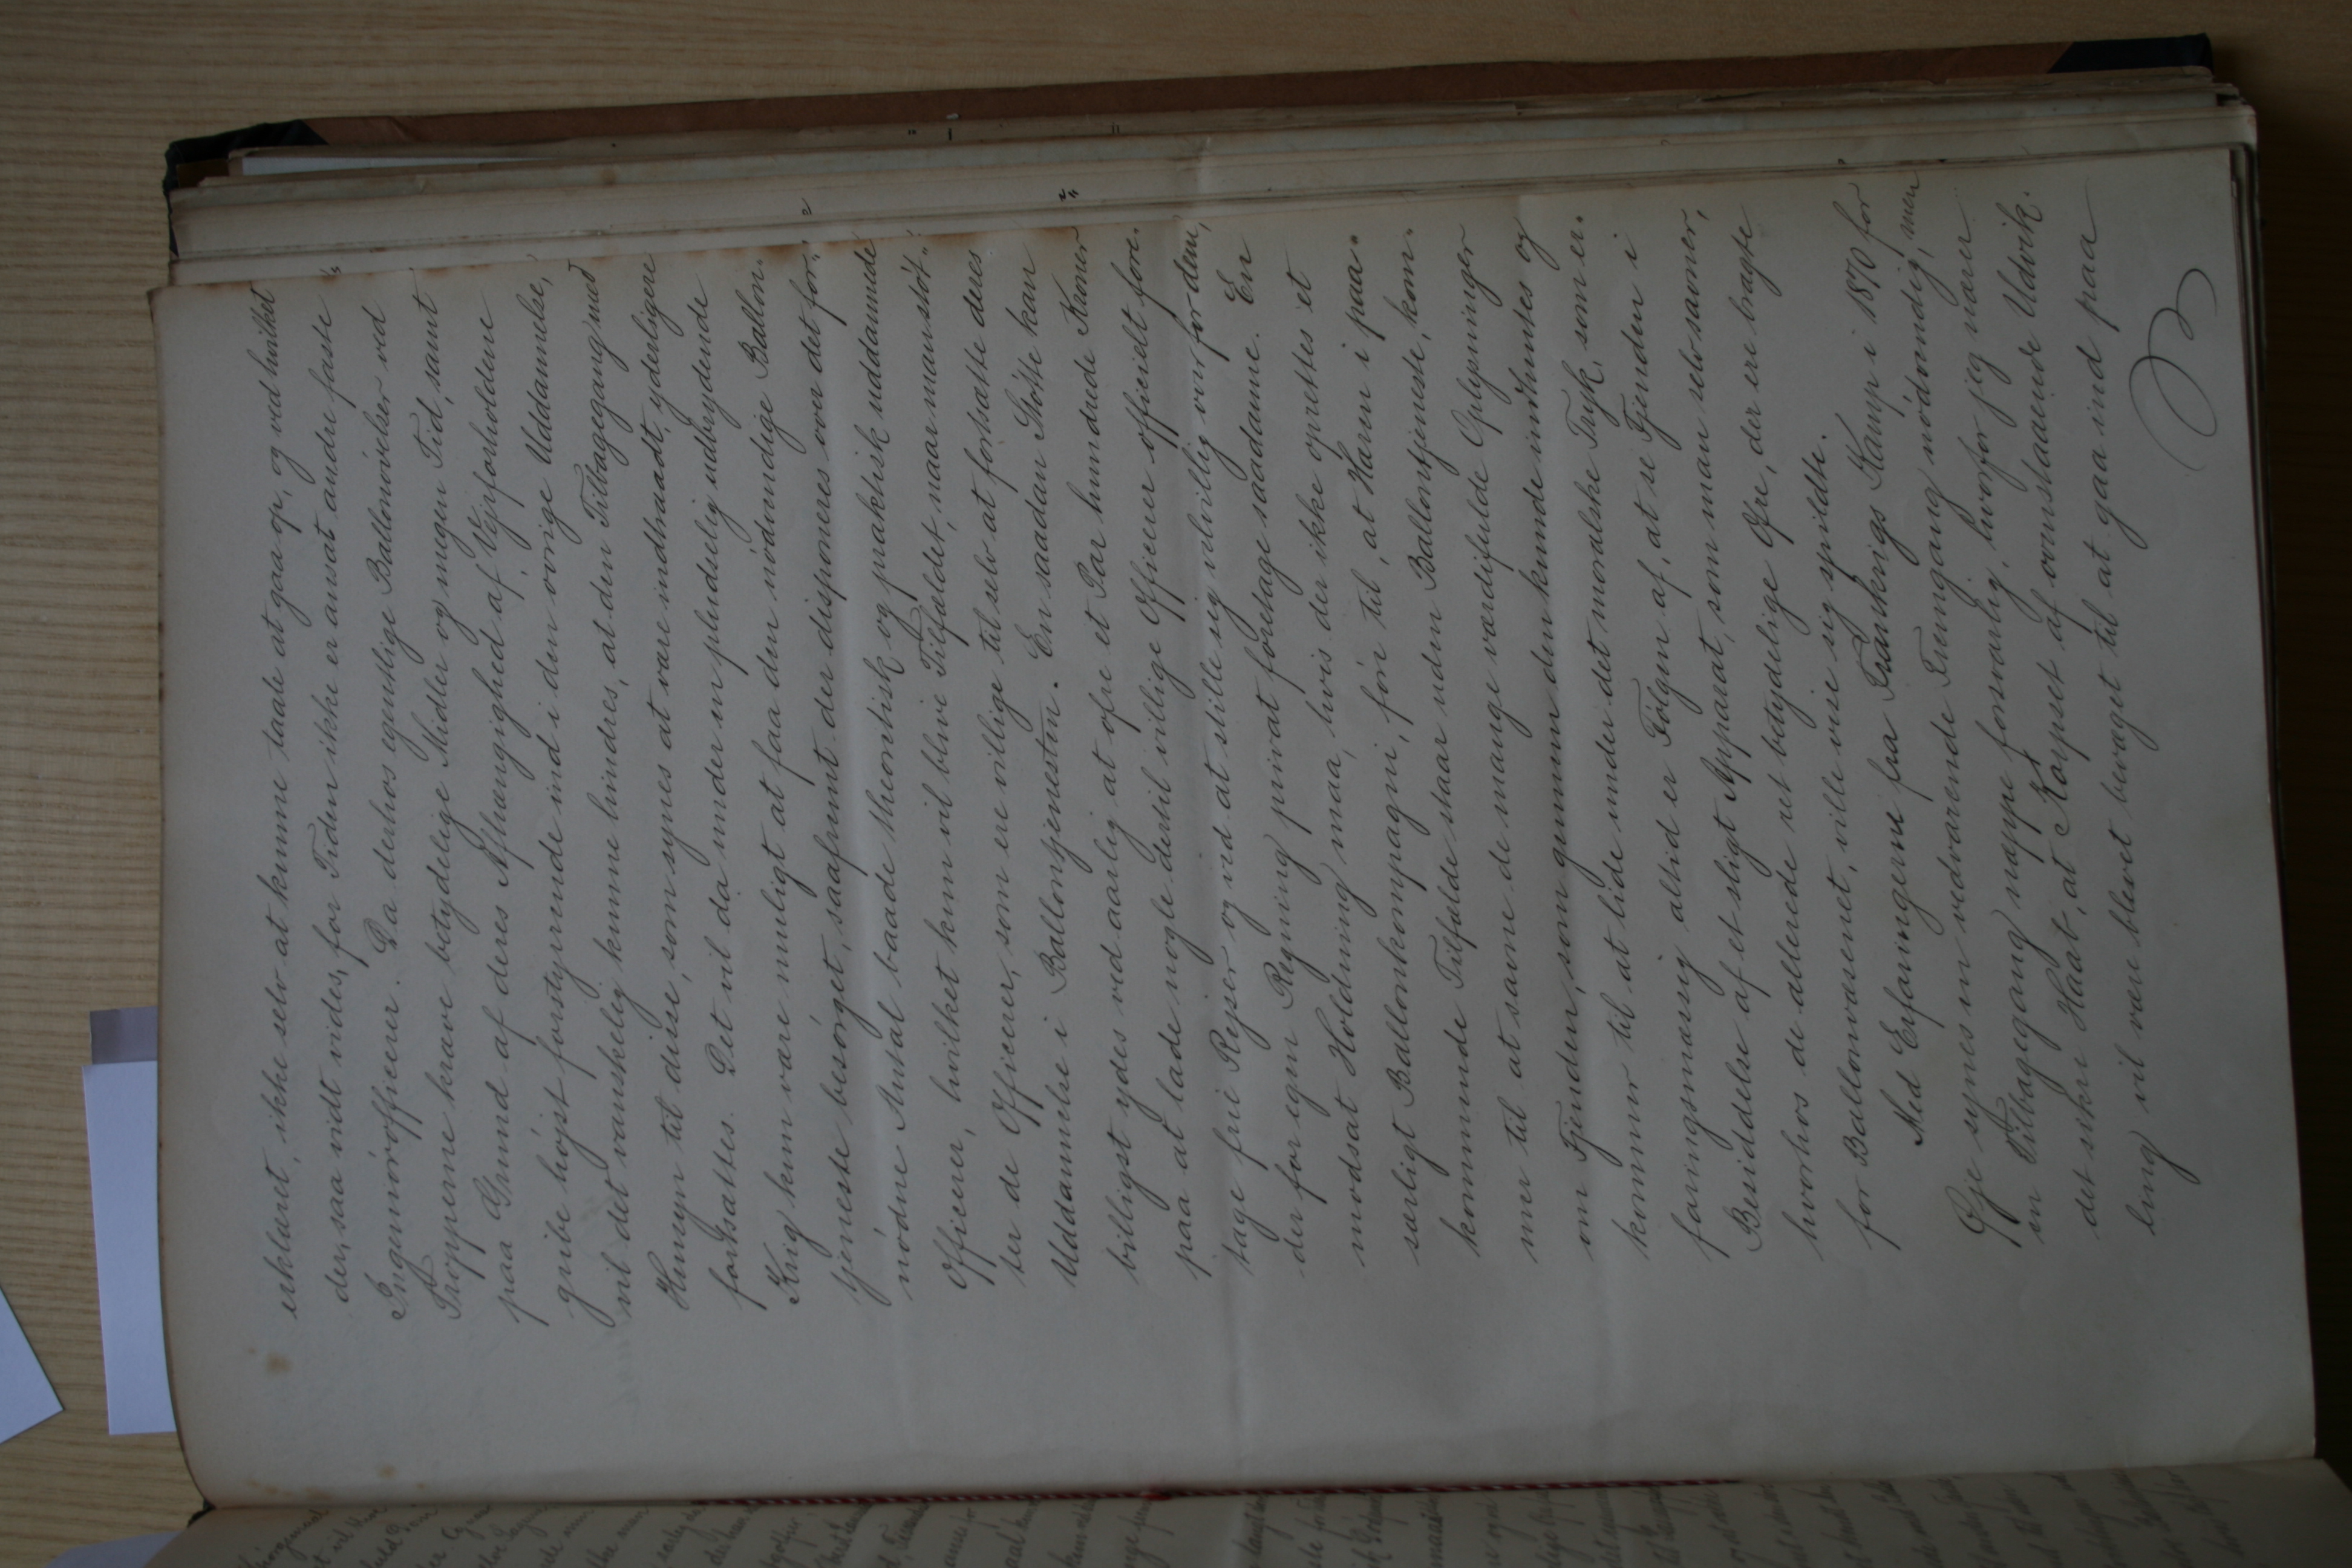 erklæret, ikke selv at kunne taale at gaa op, og ved hvilket
der, saa vidt vides, for Tiden ikke er ansat andre faste
Ingeniörofficerer. Da derhos egentlige Ballonövelser ved
Tropperne kræve betydelige Midler og megen Tid, samt
paa Grund af deres Afhængighed af Vejrforholdene
gribe höjst forstyrrende ind i den övrige Uddannelse,
vil det vanskelig kunne hindres, at den Tilbagegang med
Hensyn til disse, som synes at være indtraadt, yderligere
fortsættes. Det vil da under en pludselig udbrydende
Krig kun være muligt at faa den nödvendige Ballon-
tjeneste besörget, saafremt der disponeres over det for-
nödne Antal baade theoretisk og praktisk uddannede
Officerer, hvilket kun vil blive Tilfældet, naar man stöt-
ter de Officerer, som ere villige til selv at fortsætte deres
Uddannelse i Ballontjenesten. En saadan Stötte kan
billigst ydes ved aarlig at ofre et Par hundrede Kroner
paa at lade nogle dertil villige Officerer officielt fore-
tage frie Rejser og ved at stille sig velvillig overfor dem,
der for egen Regning privat foretage saadanne. En
modsat Holdning maa, hvis der ikke oprettes et
særligt Ballonkompagni, före til, at Hæren i paa-
kommende Tilfælde staar uden Ballontjeneste, kom-
mer til at savne de mange værdifulde Oplysninger
om Fjenden, som gennem den kunde indhentes og
kommer til at lide under det moralske Tryk, som er-
faringsmæssig altid er Fölgen af, at se Fjenden i
Besiddelse af et sligt Apparat, som man selv savner,
hvorhos de allerede ret betydelige Ofre, der ere bragte
for Ballonvæsenet, ville vise sig spildte.
Med Erfaringerne fra Frankrigs Kamp i 1870 for
Öje synes en vedvarende Fremgang nödvendig, men
en Tilbagegang næppe forsvarlig, hvorfor jeg nærer
det sikre Haab, at Korpset af ovenstaaende Udvik-
ling vil være blevet bevæget til at gaa ind paa